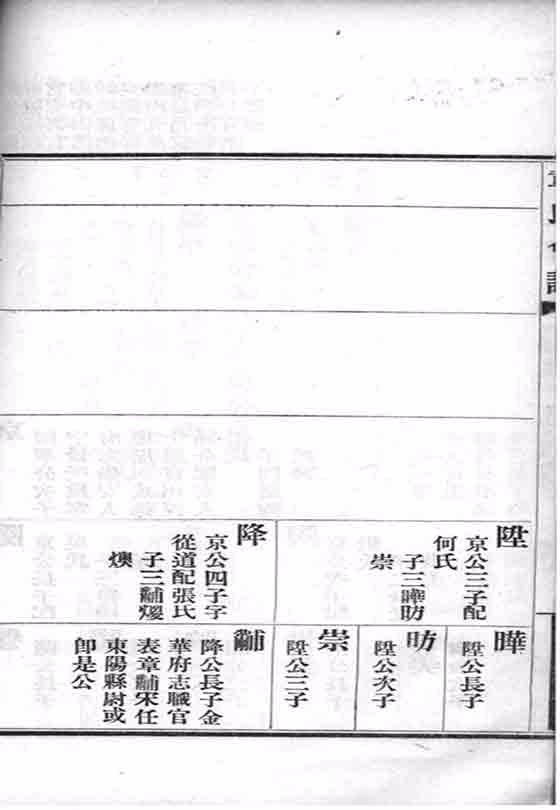 陞
京公三子配
何氏
子三曄昉
崇
降
京公四子字
從道配張氏
子三黼
燠
曄
陞公長子
昉
陞公次子
崇
陞公三子
黼
降公長子金
華府志職官
表章黼宋任
東陽縣尉或
卽是公